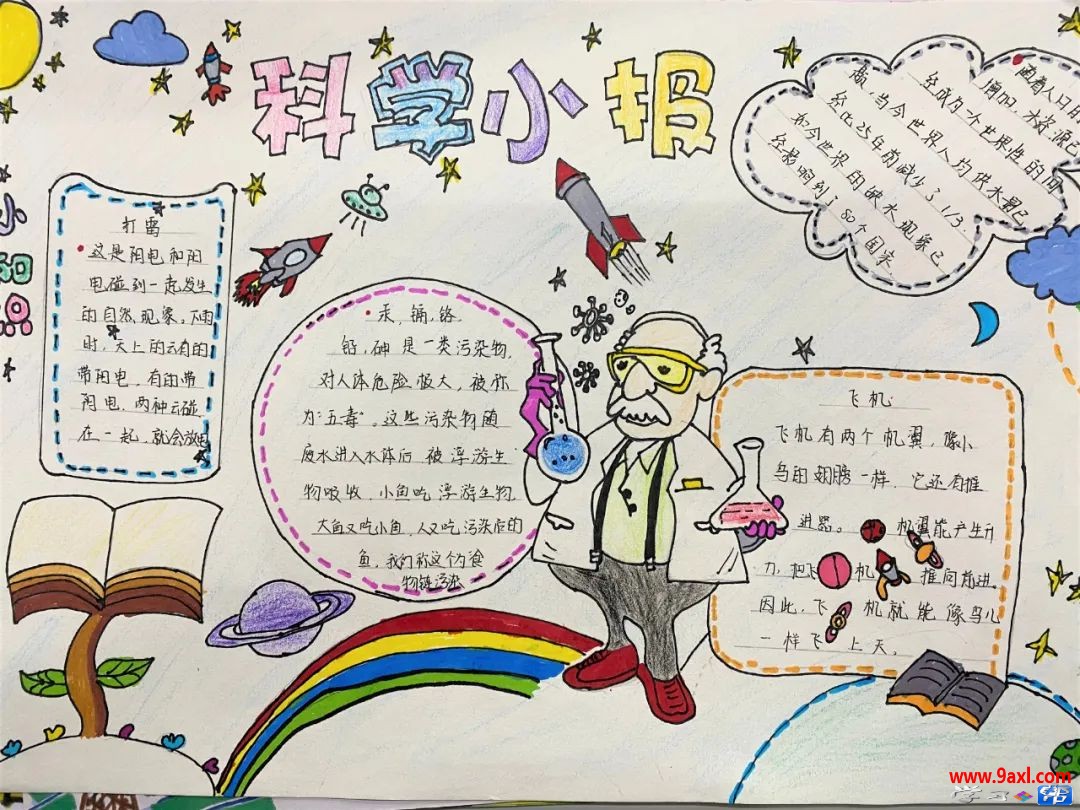 科学小报
小知识
打雷
这是阳电和阴
电碰到一起,发生
的自然现象。下雨
时,天上的云有的
带阳电,有的带
阴电,两种云碰
在一起,就会放电
汞,镉,铬
铅,砷是一类污染物,
对人体危险极大,被称
为"五毒"。这些污染物随
废水进入水体后被浮游生
物吸收,小鱼吃浮游生物,
大鱼又吃小鱼,人又吃污染的
鱼,我们称这个为食
物链污染
随着人口
增加,水资源已
经成为一个世界性的问
题,当今世界人均供水量已
经比25年前减少了1/3.
如今世界的缺水现象已
经影响到了80个国家
飞机
飞机有两个机翼,像小
鸟的翅膀一样,它还有推
进器。机翼能产生升
力,把飞机推向前进。
因此,飞机就能像鸟儿
一样飞上天。
www.9axl.com
学习